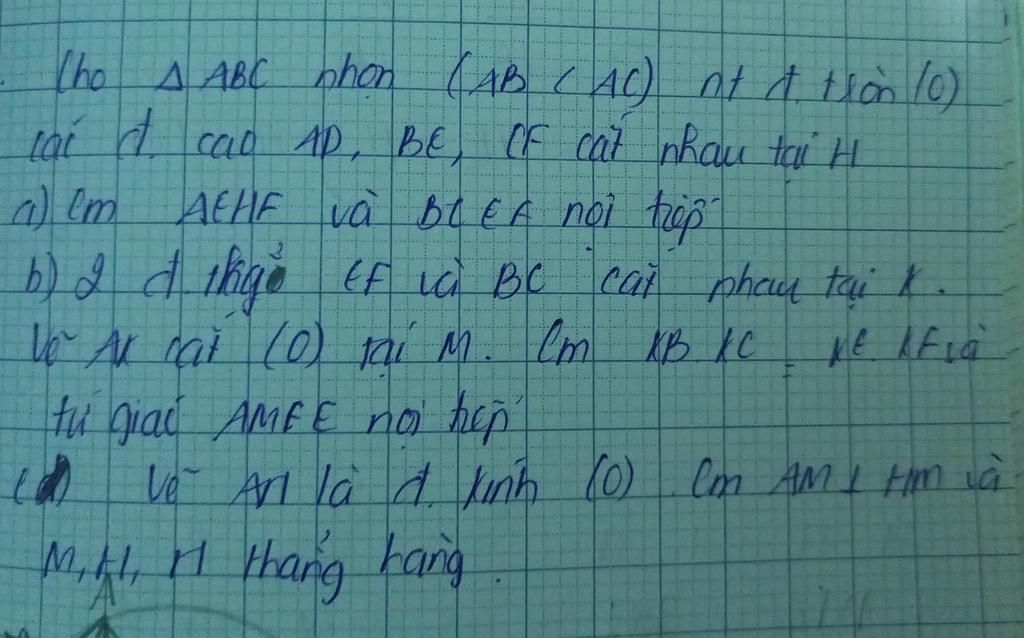 Cho Δ ABC nhọn (AB < AC) nt đ. tròn (O)
các đ. cao AD, BE, CF cắt nhau tại H
a) Cm AEHF và BCEF nội tiếp
b) 2 đ. thg EF và BC cắt nhau tại K.
Vẽ AK cắt (O) tại M. Cm KB.KC = KE.KF và
tứ giác AMFE nội tiếp
c) Vẽ AN là đ. kính (O). Cm AM ⊥ HM và
M, H, N thẳng hàng.
A